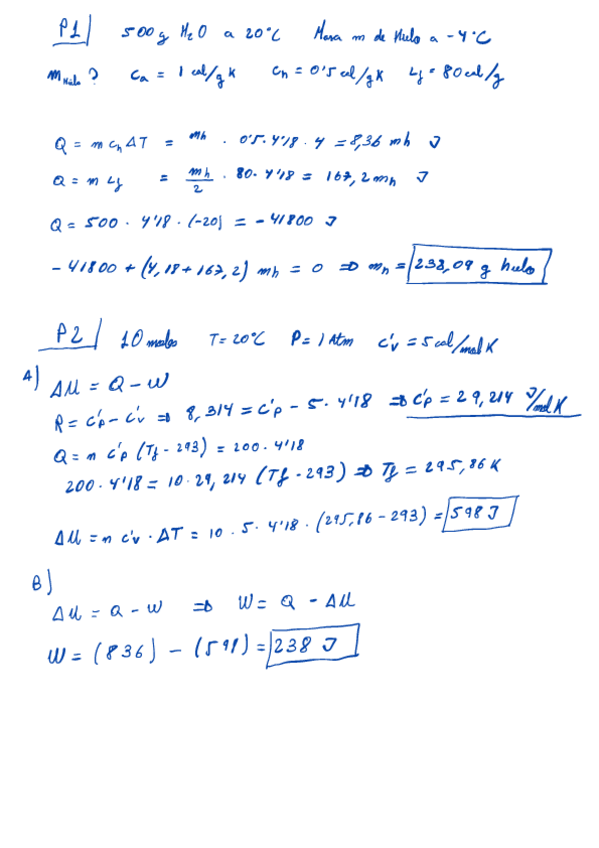 P1 500g H₂O a 20°C Masa m de Hielo a -4°C
m_Hielo? Ca = 1 cal/g K Ch = 0'5 cal/g K Lf = 80 cal/g
Q = m ch ΔT = mh · 0'5 · 4'18 · 4 = 8,36 mh J
Q = m Lf = mh/2 · 80 · 4'18 = 167,2 mh J
Q = 500 · 4'18 · (-20) = -41800 J
-41800 + (4,18 + 167,2) mh = 0 ⇒ mh = 238,09 g hielo
P2 10 moles T = 20°C P = 1 Atm c'v = 5 cal/mol K
A) ΔU = Q - W
R = c'p - c'v ⇒ 8,314 = c'p - 5 · 4'18 ⇒ c'p = 29,214 J/mol K
Q = n c'p (Tf - 293) = 200 · 4'18
200 · 4'18 = 10 · 29,214 (Tf - 293) ⇒ Tf = 295,86 K
ΔU = n c'v · ΔT = 10 · 5 · 4'18 · (295,86 - 293) = 598 J
B)
ΔU = Q - W ⇒ W = Q - ΔU
W = (836) - (598) = 238 J